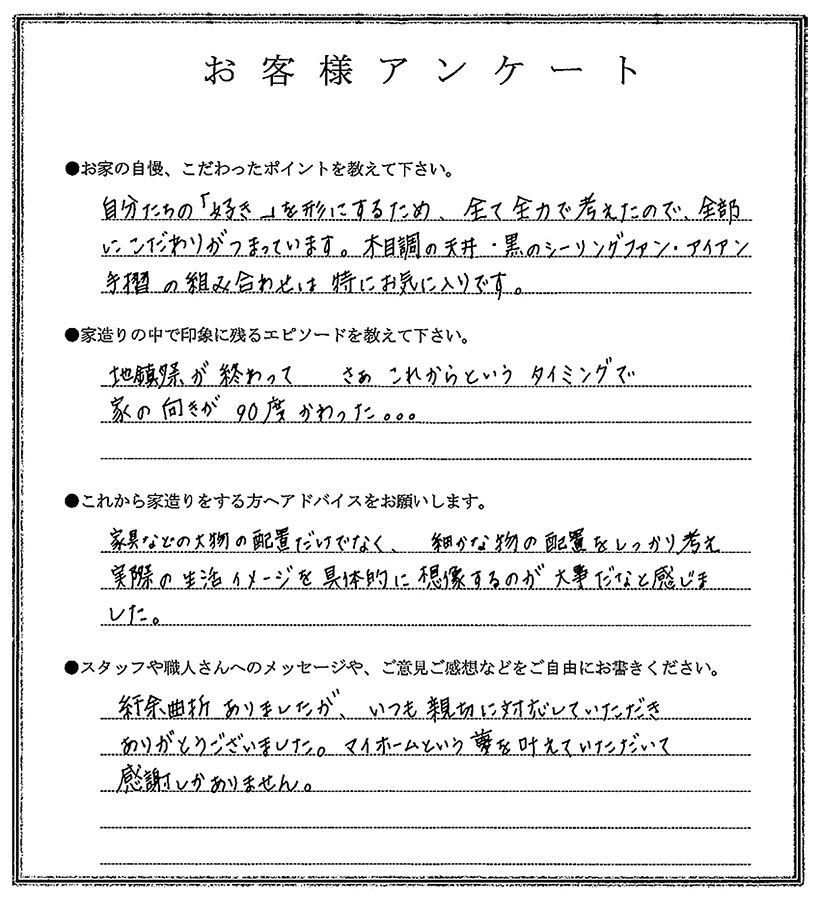 お客様アンケート
●お家の自慢、こだわったポイントを教えて下さい。
自分たちの「好き」を形にするため、全て全力で考えたので、全部
にこだわりがつまっています。木目調の天井・黒のシーリングファン・アイアン
手摺の組み合わせは特にお気に入りです。
●家造りの中で印象に残るエピソードを教えて下さい。
地鎮祭が終わって さぁ これからという タイミングで
家の向きが 90度かわった。。。
●これから家造りをする方へアドバイスをお願いします。
家具などの大物の配置だけでなく、細かな物の配置をしっかり考え
実際の生活イメージを具体的に想像するのが大事だなと感じま
した。
●スタッフや職人さんへのメッセージや、ご意見ご感想などをご自由にお書きください。
紆余曲折ありましたが、いつも親切に対応していただき
ありがとうございました。マイホームという夢を叶えていただいて
感謝しかありません。